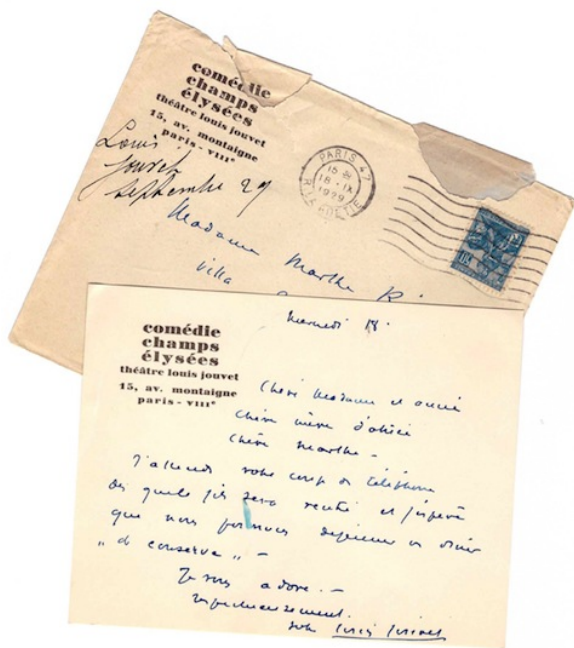 comédie
champs
élysées
théâtre louis jouvet
15, av. montaigne
paris - VIIIe
Louis
Jouvet
Septembre 29
PARIS 47
15
18 - IX
1929
R. LA BOETIE
Madame Marthe
villa
comédie
champs
élysées
théâtre louis jouvet
15, av. montaigne
paris - VIIIe
Mercredi 18.
Chère Madame et amie
Chère
Chère Marthe -
J'attends votre coup de téléphone
dès sera et j'espère
que nous déjeuner ou dîner
"de conserve" -
Je vous adore. -
respectueusement.
votre Louis Jouvet